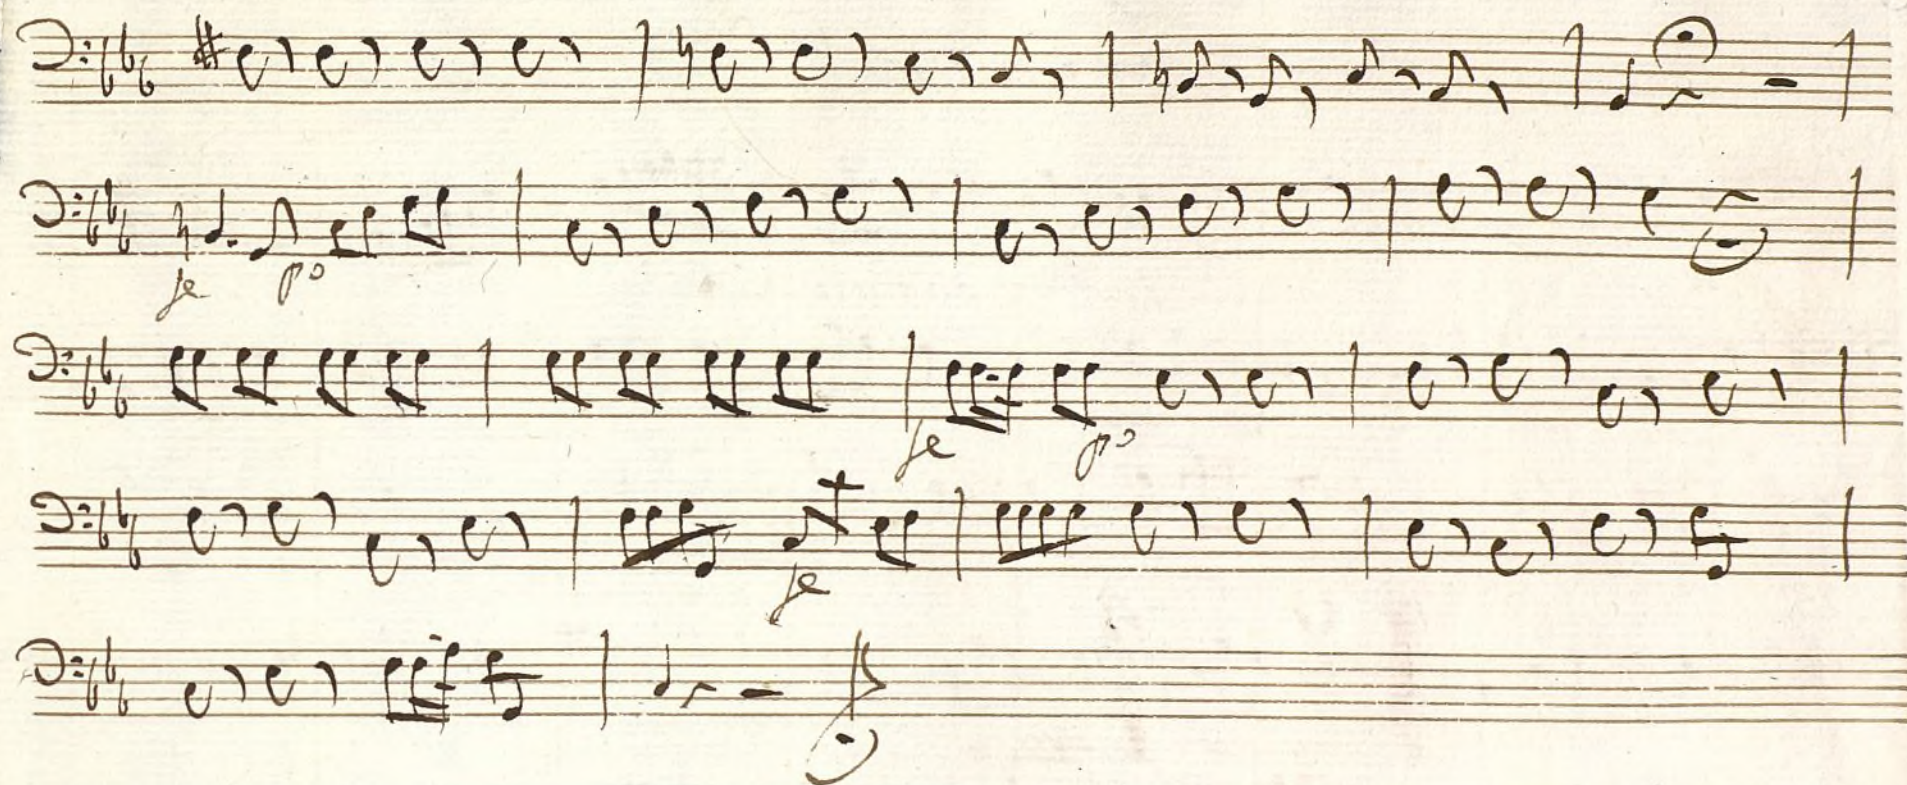 fe po
fe po
fe